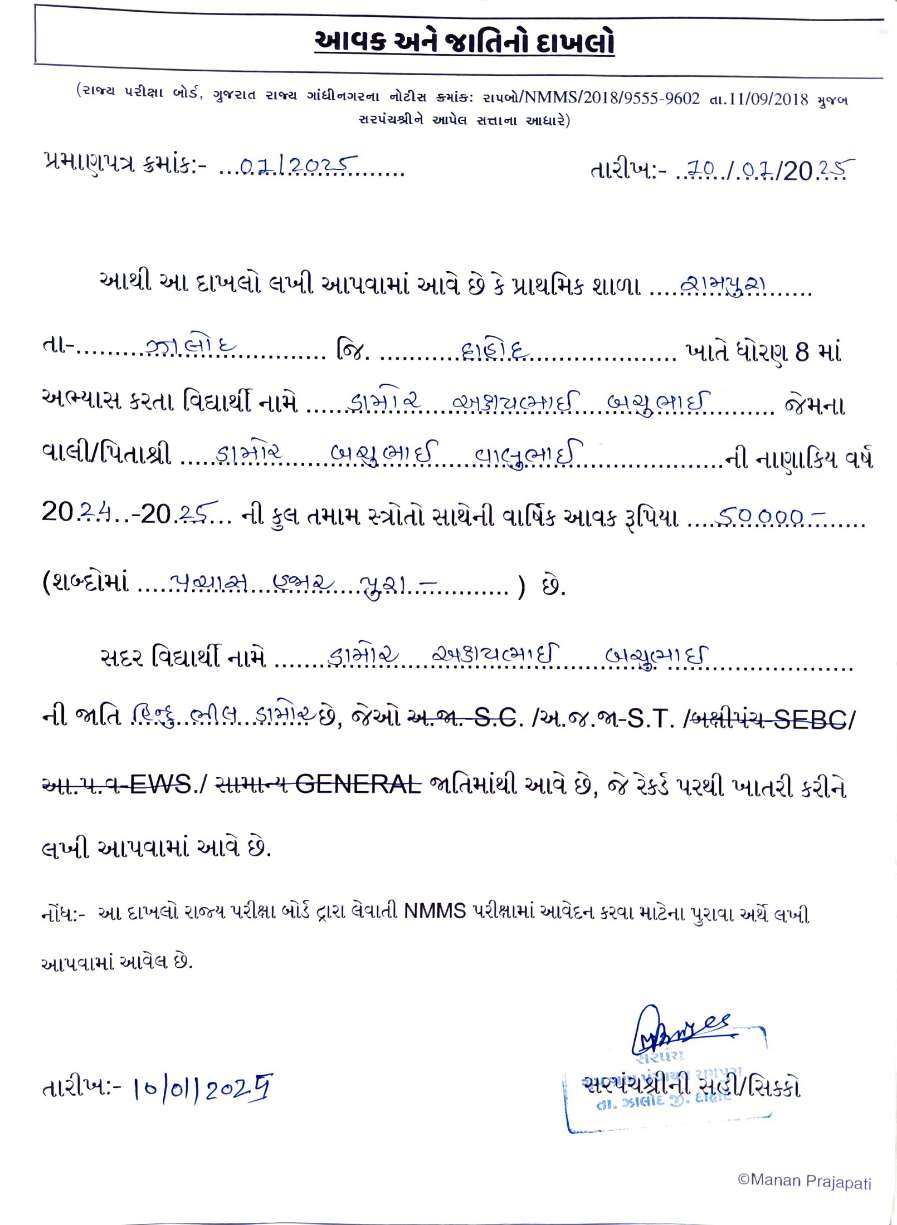 આવક અને જાતિનો દાખલો
(રાજ્ય પરીક્ષા બોર્ડ, ગુજરાત રાજ્ય ગાંધીનગરના નોટીસ ક્રમાંક: રાપબો/NMMS/2018/9555-9602 તા.11/09/2018 મુજબ
સરપંચશ્રીને આપેલ સત્તાના આધારે)
પ્રમાણપત્ર ક્રમાંક:- ...01/2025................... તારીખ:- ..10../.01/2025
આથી આ દાખલો લખી આપવામાં આવે છે કે પ્રાથમિક શાળા ....રામપુરા.......
તા-.........ઝાલોદ............ જિ. ..........દાહોદ.................... ખાતે ધોરણ 8 માં
અભ્યાસ કરતા વિદ્યાર્થી નામે .....ડામોર અક્ષયભાઈ બચુભાઈ......... જેમના
વાલી/પિતાશ્રી .....ડામોર બચુભાઈ વાલુભાઈ....................ની નાણાકિય વર્ષ
20.24..-20.25... ની કુલ તમામ સ્ત્રોતો સાથેની વાર્ષિક આવક રૂપિયા ....50000-......
(શબ્દોમાં ....પચાસ હજાર પુરા-............ ) છે.
સદર વિદ્યાર્થી નામે .......ડામોર અક્ષયભાઈ બચુભાઈ....................
ની જાતિ હિન્દુ ભીલ ડામોર છે, જેઓ અ.જા.-S.C. /અ.જ.જા-S.T. /બક્ષીપંચ-SEBC/
આ.પ.વ-EWS./ સામાન્ય GENERAL જાતિમાંથી આવે છે, જે રેકર્ડ પરથી ખાતરી કરીને
લખી આપવામાં આવે છે.
નોંધ:- આ દાખલો રાજ્ય પરીક્ષા બોર્ડ દ્વારા લેવાતી NMMS પરીક્ષામાં આવેદન કરવા માટેના પુરાવા અર્થે લખી
આપવામાં આવેલ છે.
સરપંચ
તારીખ:- 10/01/2025 સરપંચશ્રીની સહી/સિક્કો
તા. ઝાલોદ જી. દાહોદ
©Manan Prajapati